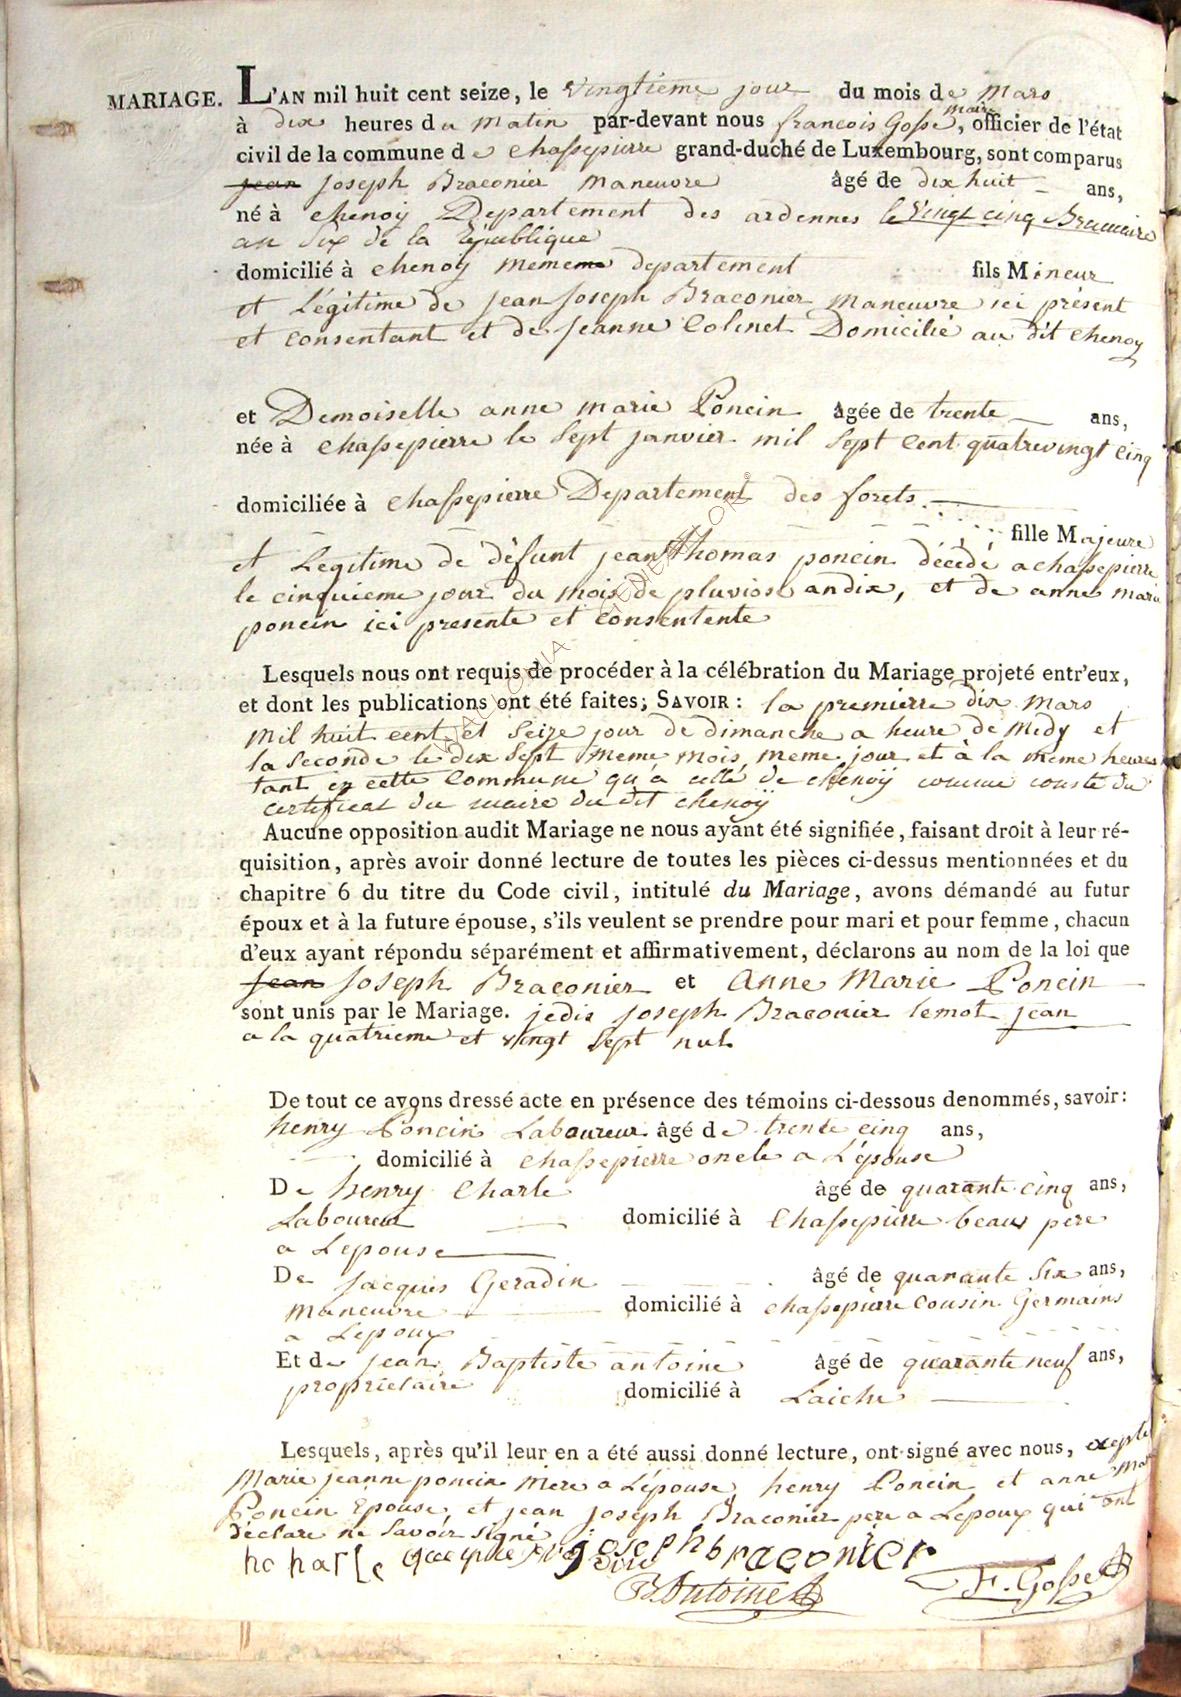 MARIAGE. L'AN mil huit cent seize, le vingtieme jour du mois de Mars
à dix heures du Matin par-devant nous francois Gosse maire, officier de l'état
civil de la commune de chassepierre grand-duché de Luxembourg, sont comparus
jean joseph Braconier maneuvre âgé de dix huit ans,
né à chenoÿ Departement des ardennes le vingt cinq Brumaire
an Six de la République
domicilié à chenoÿ mememe departement fils Mineur
et Légitime de jean joseph Braconier maneuvre ici présent
et consentant et de jeanne Colinet Domicilié au dit chenoy
et Demoiselle anne marie Poncin âgée de trente ans,
née à chassepierre le Sept janvier mil sept cent quatrevingt cinq
domiciliée à chassepierre Departement des forets.
fille Majeure
et Legitime de défunt jean thomas poncin décédé a chassepierre
le cinquieme jour du mois de pluviose an dix, et de anne marie
poncin ici presente et consentente
WALLONIA GENIEALOR ©
Lesquels nous ont requis de procéder à la célébration du Mariage projeté entr'eux,
et dont les publications ont été faites; SAVOIR : la premierre dix mars
mil huit cent et Seize jour de dimanche a heure de Midy et
la Seconde le dix Sept meme mois, meme jour et à la meme heure
tant en cette Commune qu'a celle de chenoÿ comme conste du
certificat du maire du dit chenoÿ
Aucune opposition audit Mariage ne nous ayant été signifiée, faisant droit à leur ré-
quisition, après avoir donné lecture de toutes les pièces ci-dessus mentionnées et du
chapitre 6 du titre du Code civil, intitulé du Mariage, avons démandé au futur
époux et à la future épouse, s'ils veulent se prendre pour mari et pour femme, chacun
d'eux ayant répondu séparément et affirmativement, déclarons au nom de la loi que
jean joseph Braconier et Anne Marie Poncin
sont unis par le Mariage. je dis joseph Braconier le mot jean
a la quatrieme et vingt Sept nul
De tout ce avons dressé acte en présence des témoins ci-dessous denommés, savoir :
henry Poncin Laboureur âgé de trente cinq ans,
domicilié à chassepierre oncle a L'épouse
De henry Charle âgé de quarante cinq ans,
Laboureur domicilié à Chassepierre beau pere
a Lepouse
De jacques Geradin âgé de quarante Six ans,
maneuvre domicilié à chassepierre Cousin Germains
a Lepoux
Et de jean Baptiste antoine âgé de quarante neuf ans,
proprietaire domicilié à Laiche
Lesquels, après qu'il leur en a été aussi donné lecture, ont signé avec nous, excepte
Marie jeanne poncin mere a L'épouse, henry Poncin et anne Marie
Poncin Epouse, et jean joseph Braconier pere a Lepoux qui ont
déclare ne Savoir signé
hcharle joseph braconier
B. Antoine F. Gosse